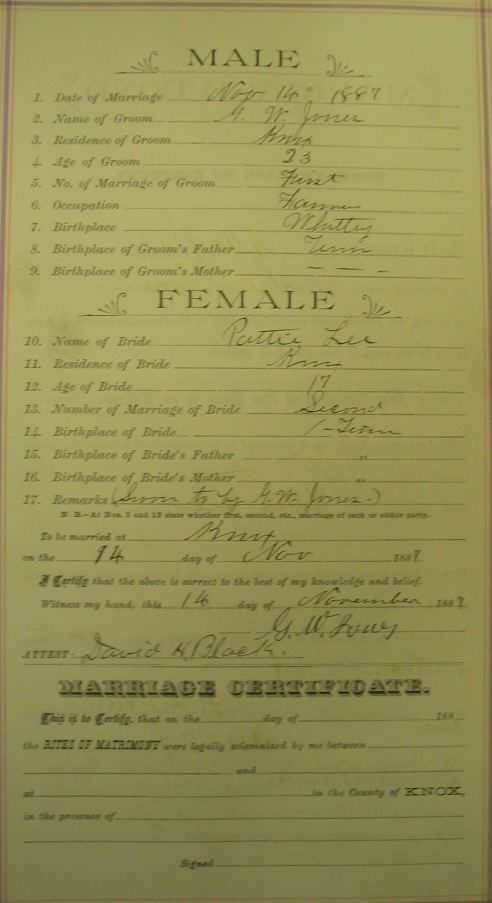 MALE
1. Date of Marriage Nov 14" 1887
2. Name of Groom G. W. Jones
3. Residence of Groom Knox
4. Age of Groom 23
5. No. of Marriage of Groom First
6. Occupation Farmer
7. Birthplace Whitley
8. Birthplace of Groom's Father Tenn
9. Birthplace of Groom's Mother — — -
FEMALE
10. Name of Bride Pattie Lee
11. Residence of Bride Knox
12. Age of Bride 17
13. Number of Marriage of Bride Second
14. Birthplace of Bride Tenn
15. Birthplace of Bride's Father "
16. Birthplace of Bride's Mother "
17. Remarks (Sworn to by G. W. Jones.)
N. B.—At Nos. 5 and 13 state whether first, second, etc., marriage of each or either party.
To be married at Knox
on the 14 day of Nov 1887
I Certify that the above is correct to the best of my knowledge and belief.
Witness my hand, this 14 day of November 1887
G. W. Jones
ATTEST: David H. Black.
MARRIAGE CERTIFICATE.
This is to Certify, that on the day of 188
the RITES OF MATRIMONY were legally solemnized by me between
and
at in the County of KNOX,
in the presence of
Signed